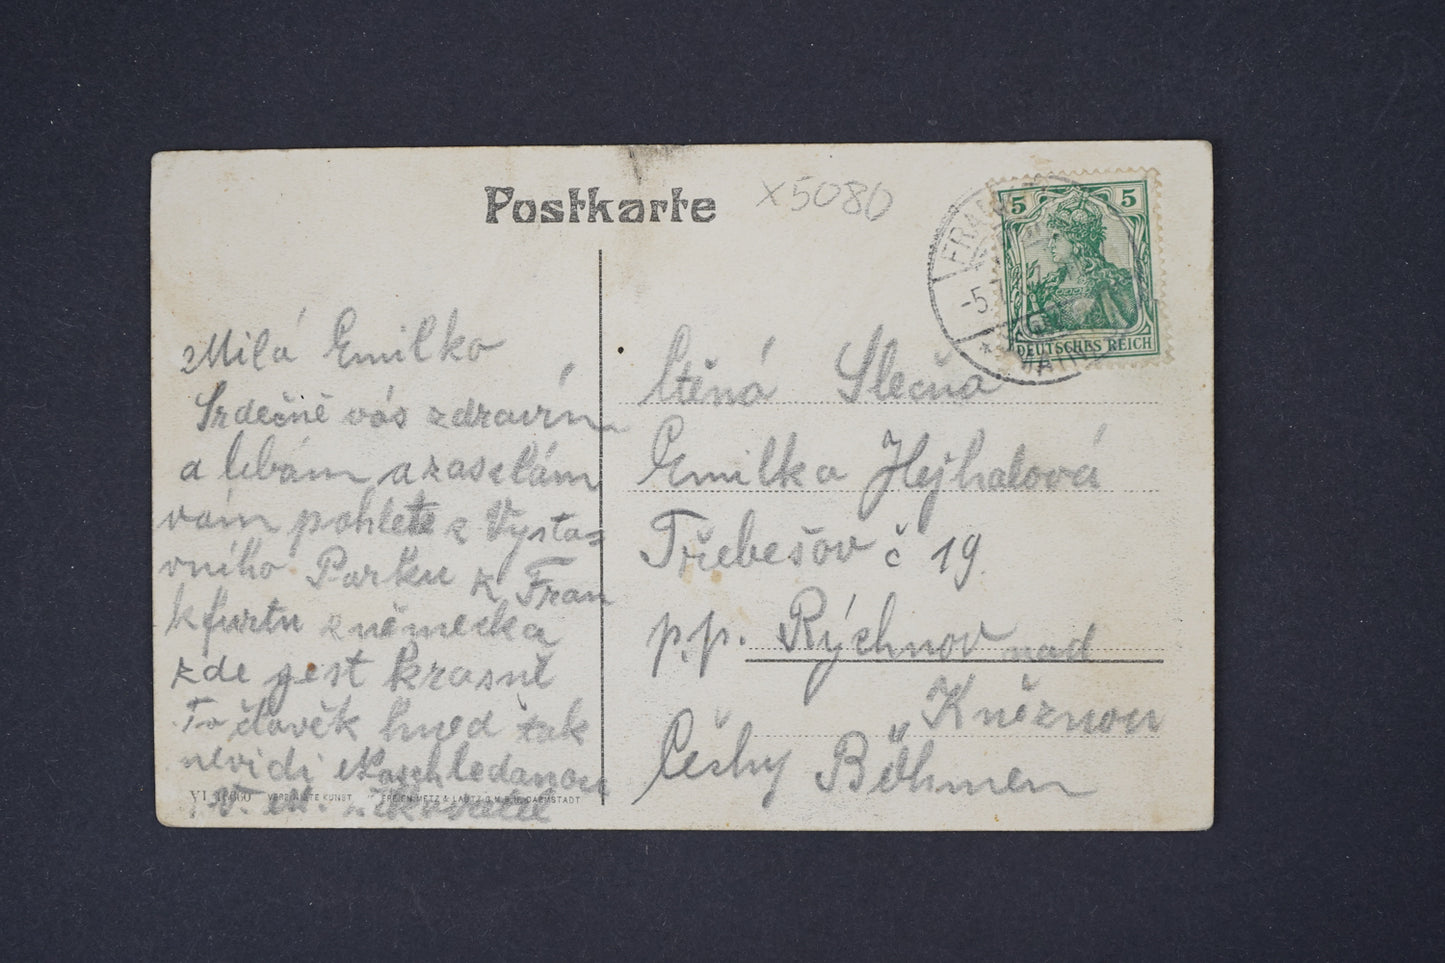 Postkarte
x5080
5 5
DEUTSCHES REICH
FRA
-5.
Milá Emilko
Srdečně vás zdravím
a libám a zaselám
vám pohlete z Vysta=
vního Parku z Fran
kfurtu z německa
zde jest krasně
To člověk hned tak
nevidi Naschledanou
Ctěná Slečna
Emilka Hejhalová
Třebešov č 19.
p.p. Rýchnov nad
Kněžnou
Česhy Böhmen
VEREINIGTE KUNST FREIEN METZ & LAUTZ G.M.B.H. DARMSTADT